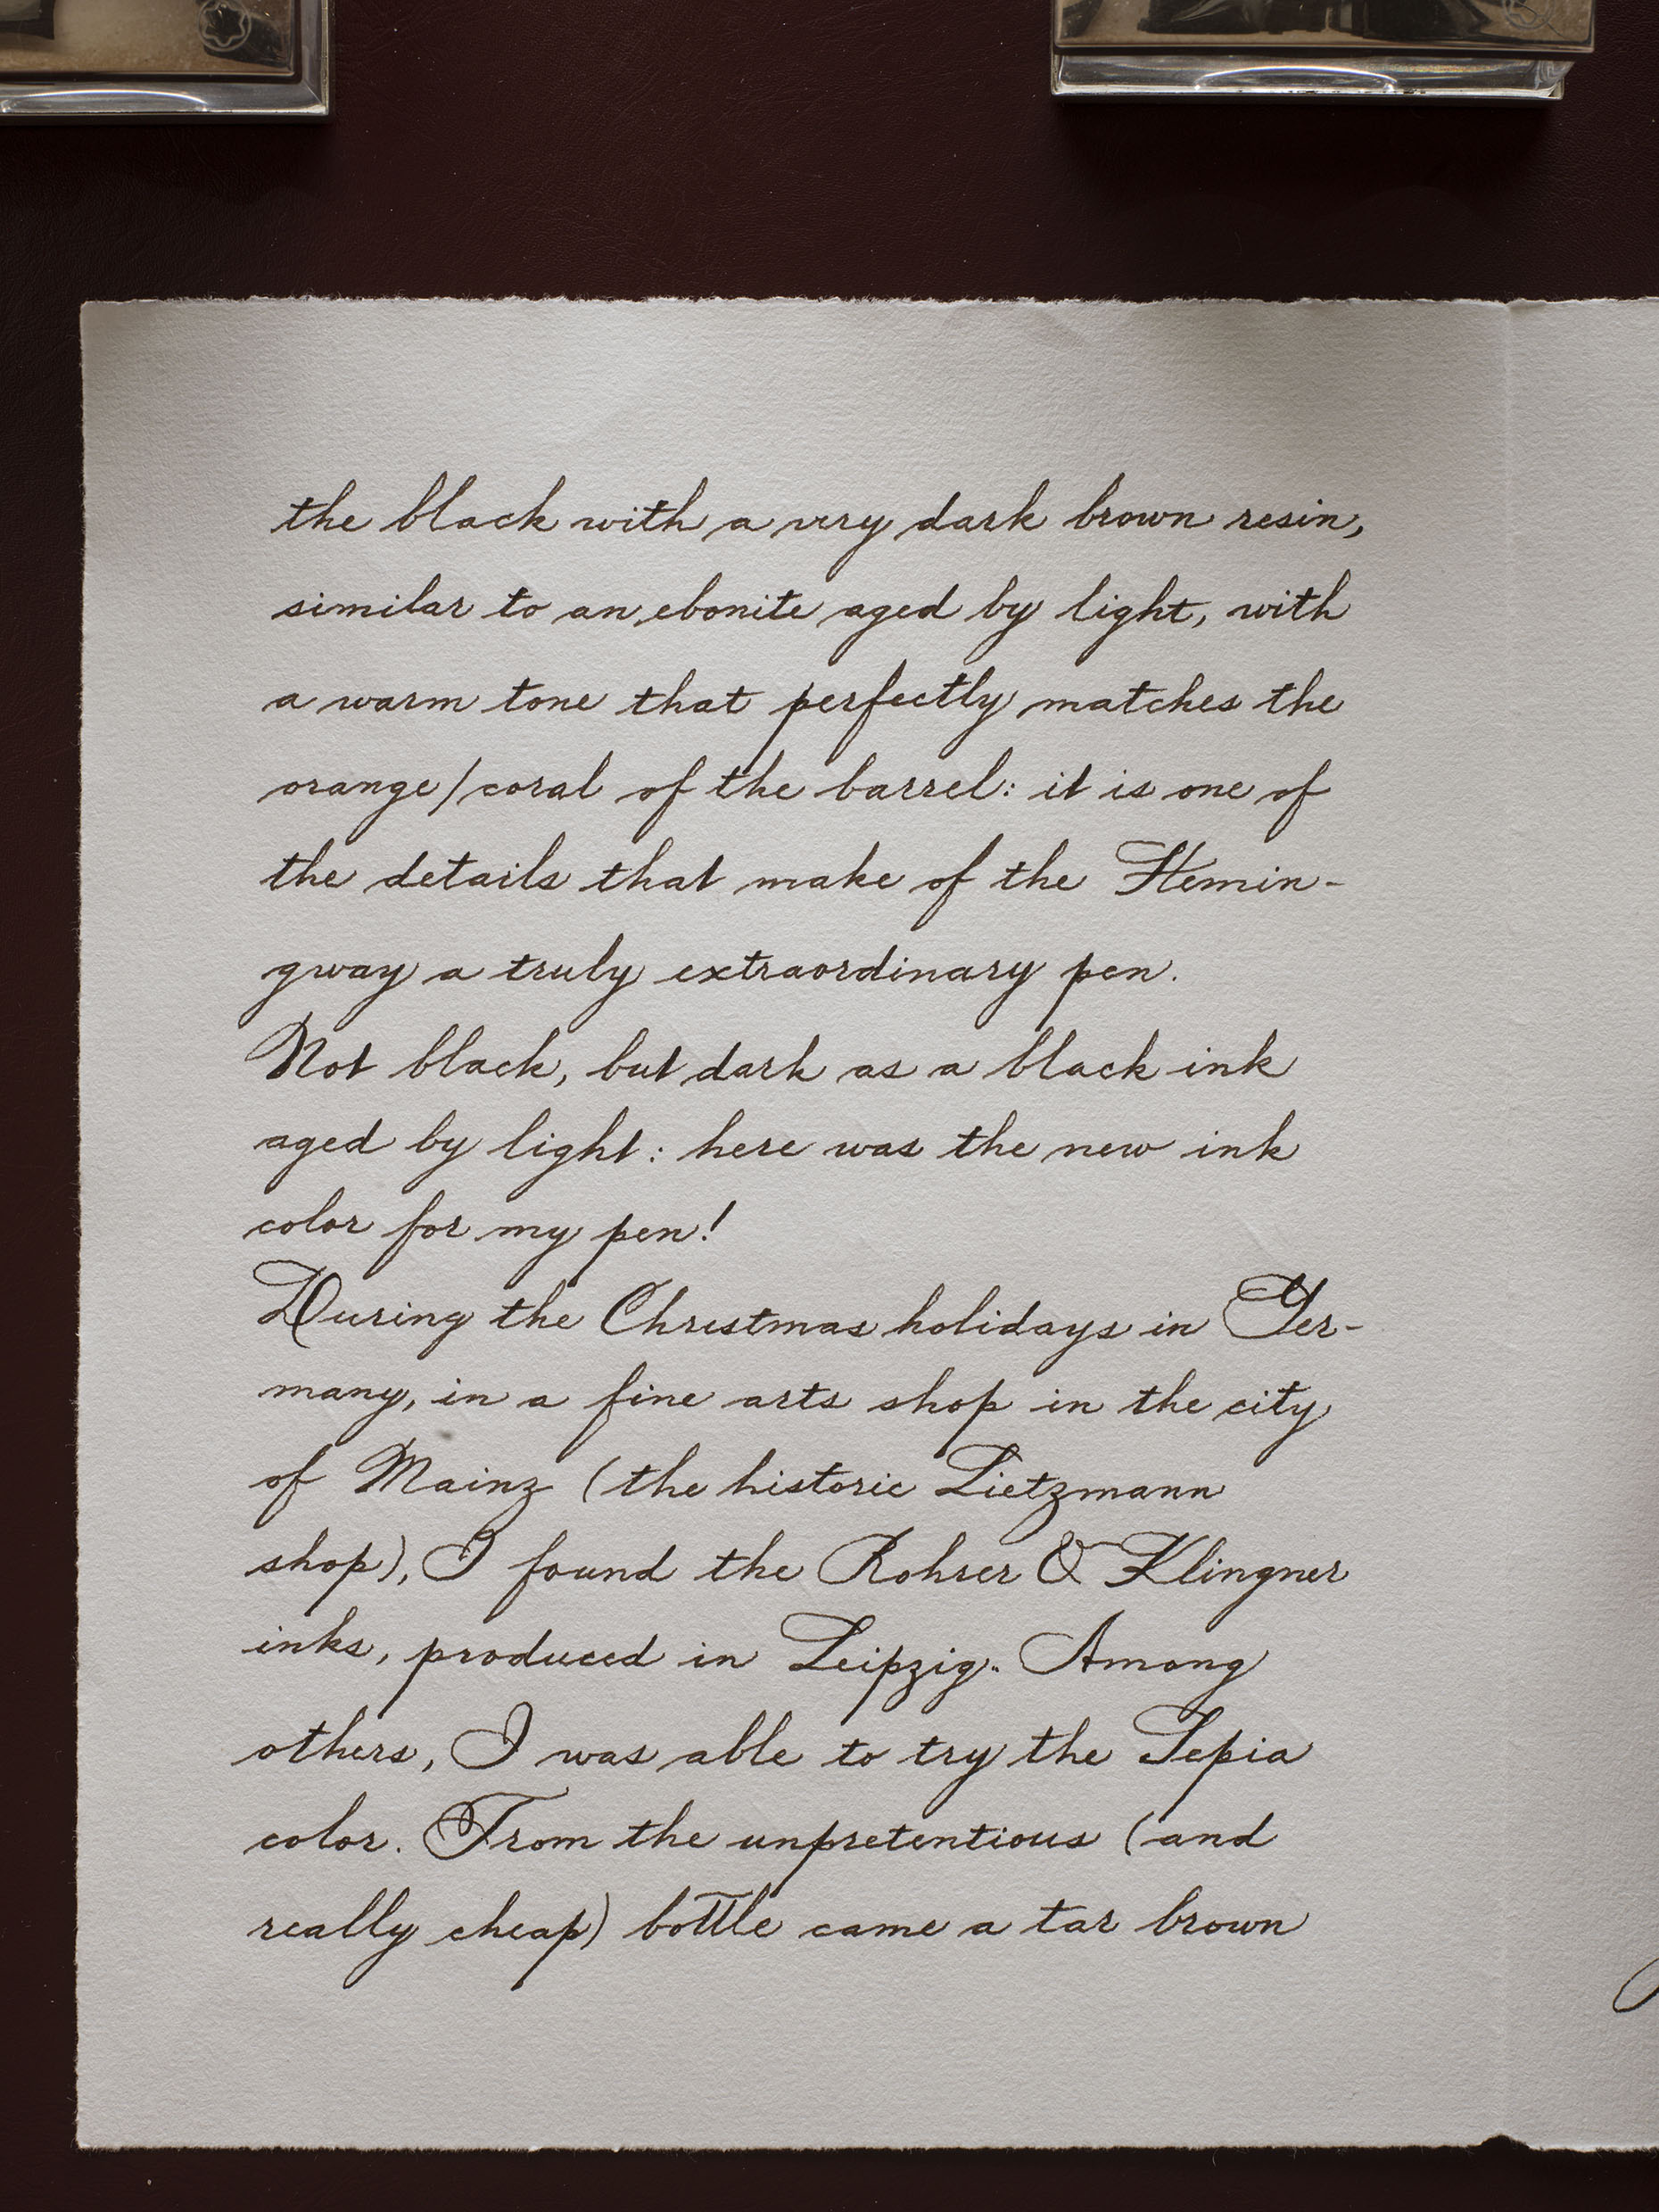 the black with a very dark brown resin,
similar to an ebonite aged by light, with
a warm tone that perfectly matches the
orange/coral of the barrel: it is one of
the details that make of the Hemin-
gway a truly extraordinary pen.
Not black, but dark as a black ink
aged by light: here was the new ink
color for my pen!
During the Christmas holidays in Ger-
many, in a fine arts shop in the city
of Mainz (the historic Lietzmann
shop), I found the Rohrer & Klingner
inks, produced in Leipzig. Among
others, I was able to try the Sepia
color. From the unpretentious (and
really cheap) bottle came a tar brown